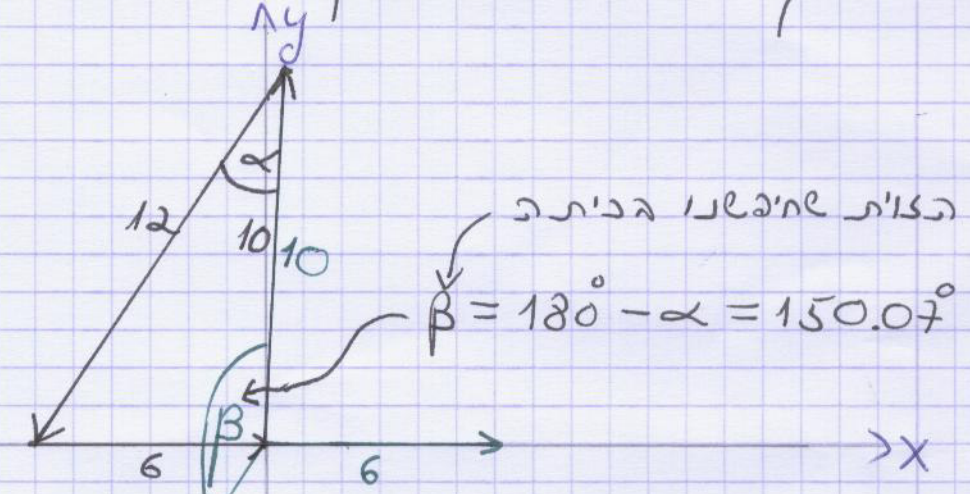 y
α
12
10 10
הזוית שחיפשנו בכיתה
β = 180° - α = 150.07°
β
6 6
x